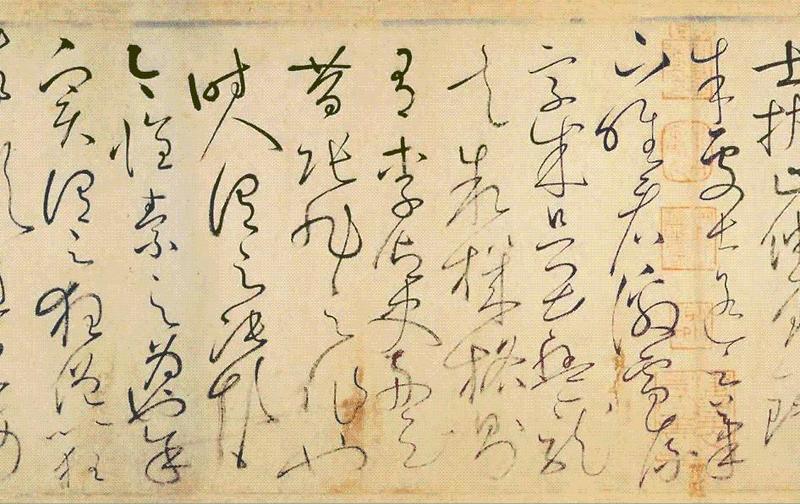 士拔山伸勁鐵
朱處士遙云筆
下唯看激電流
字成只畏盤龍
走敘機格則
有李御史舟云
昔張旭之作也
時人謂之張顛
今懷素之為也余
實謂之狂僧以狂